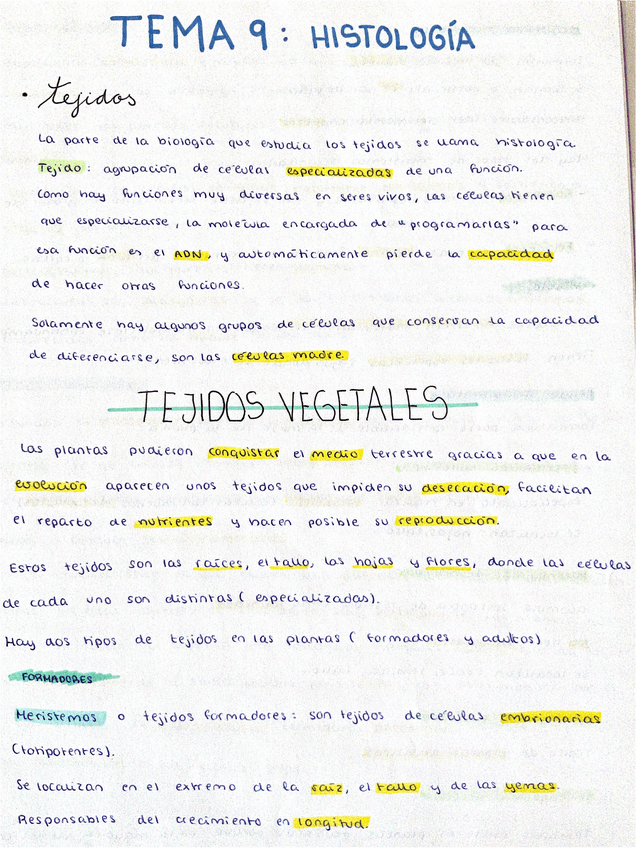 TEMA 9: HISTOLOGÍA
• Tejidos
La parte de la biología que estudia los tejidos se llama histología
Tejido: agrupación de células especializadas de una función.
Como hay funciones muy diversas en seres vivos, las células tienen
que especializarse, la molécula encargada de "programarlas" para
esa función es el ADN, y automáticamente pierde la capacidad
de hacer otras funciones.
Solamente hay algunos grupos de células que conservan la capacidad
de diferenciarse, son las células madre.
TEJIDOS VEGETALES
Las plantas pudieron conquistar el medio terrestre gracias a que en la
evolución aparecen unos tejidos que impiden su desecación, facilitan
el reparto de nutrientes y hacen posible su reproducción.
Estos tejidos son las raíces, el tallo, las hojas y flores, donde las células
de cada uno son distintas (especializadas).
Hay dos tipos de tejidos en las plantas (formadores y adultos)
FORMADORES
Meristemos o tejidos formadores: son tejidos de células embrionarias
(totipotentes).
Se localizan en el extremo de la raíz, el tallo y de las yemas.
Responsables del crecimiento en longitud.